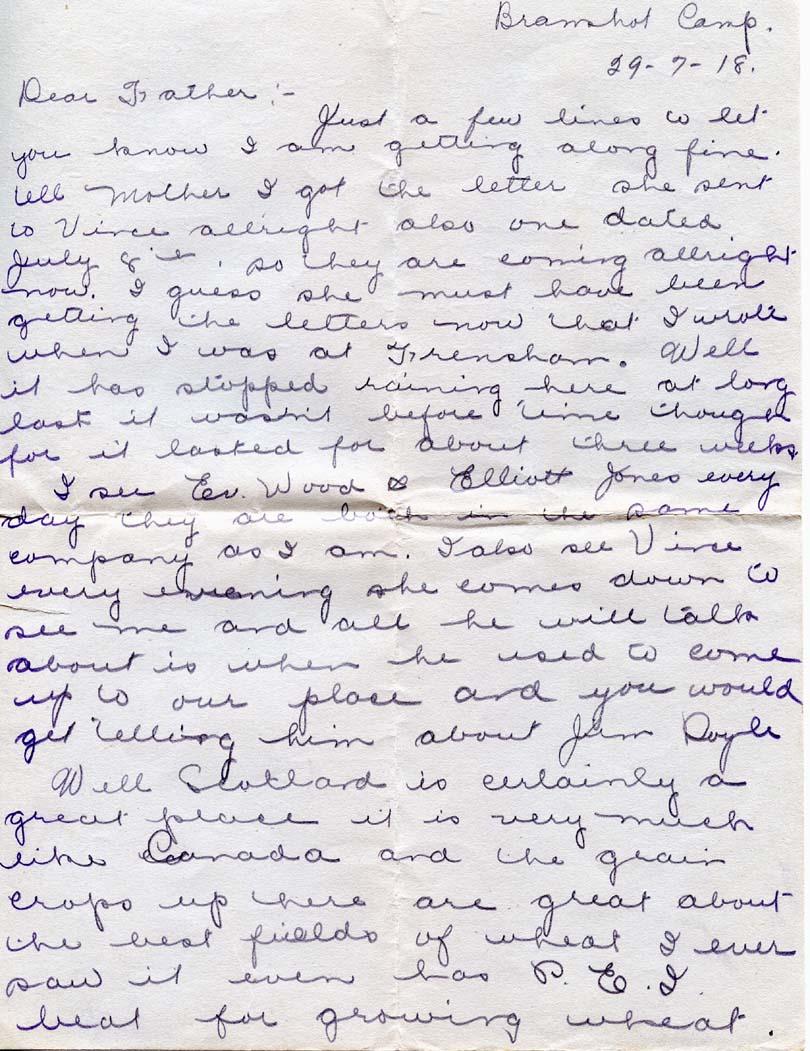 Bramshot Camp.
29-7-18.
Dear Father:-
Just a few lines to let
you know I am getting along fine.
tell Mother I got the letter she sent
to Vince allright also one dated
July 8th, so they are coming allright
now. I guess she must have been
getting the letters now that I wrote
when I was at Frensham. Well
it has stopped raining here at long
last it wasn't before time though
for it lasted for about three weeks
I see Ev. Wood & Elliott Jones every
day they are both in the same
company as I am. I also see Vince
every evening she comes down to
see me and all he will talk
about is when he used to come
up to our place and you would
get telling him about Jim Doyle
Well Scotland is certainly a
great place it is very much
like Canada and the grain
crops up there are great about
the best fields of wheat I ever
saw it even has P.E.I.
beat for growing wheat.